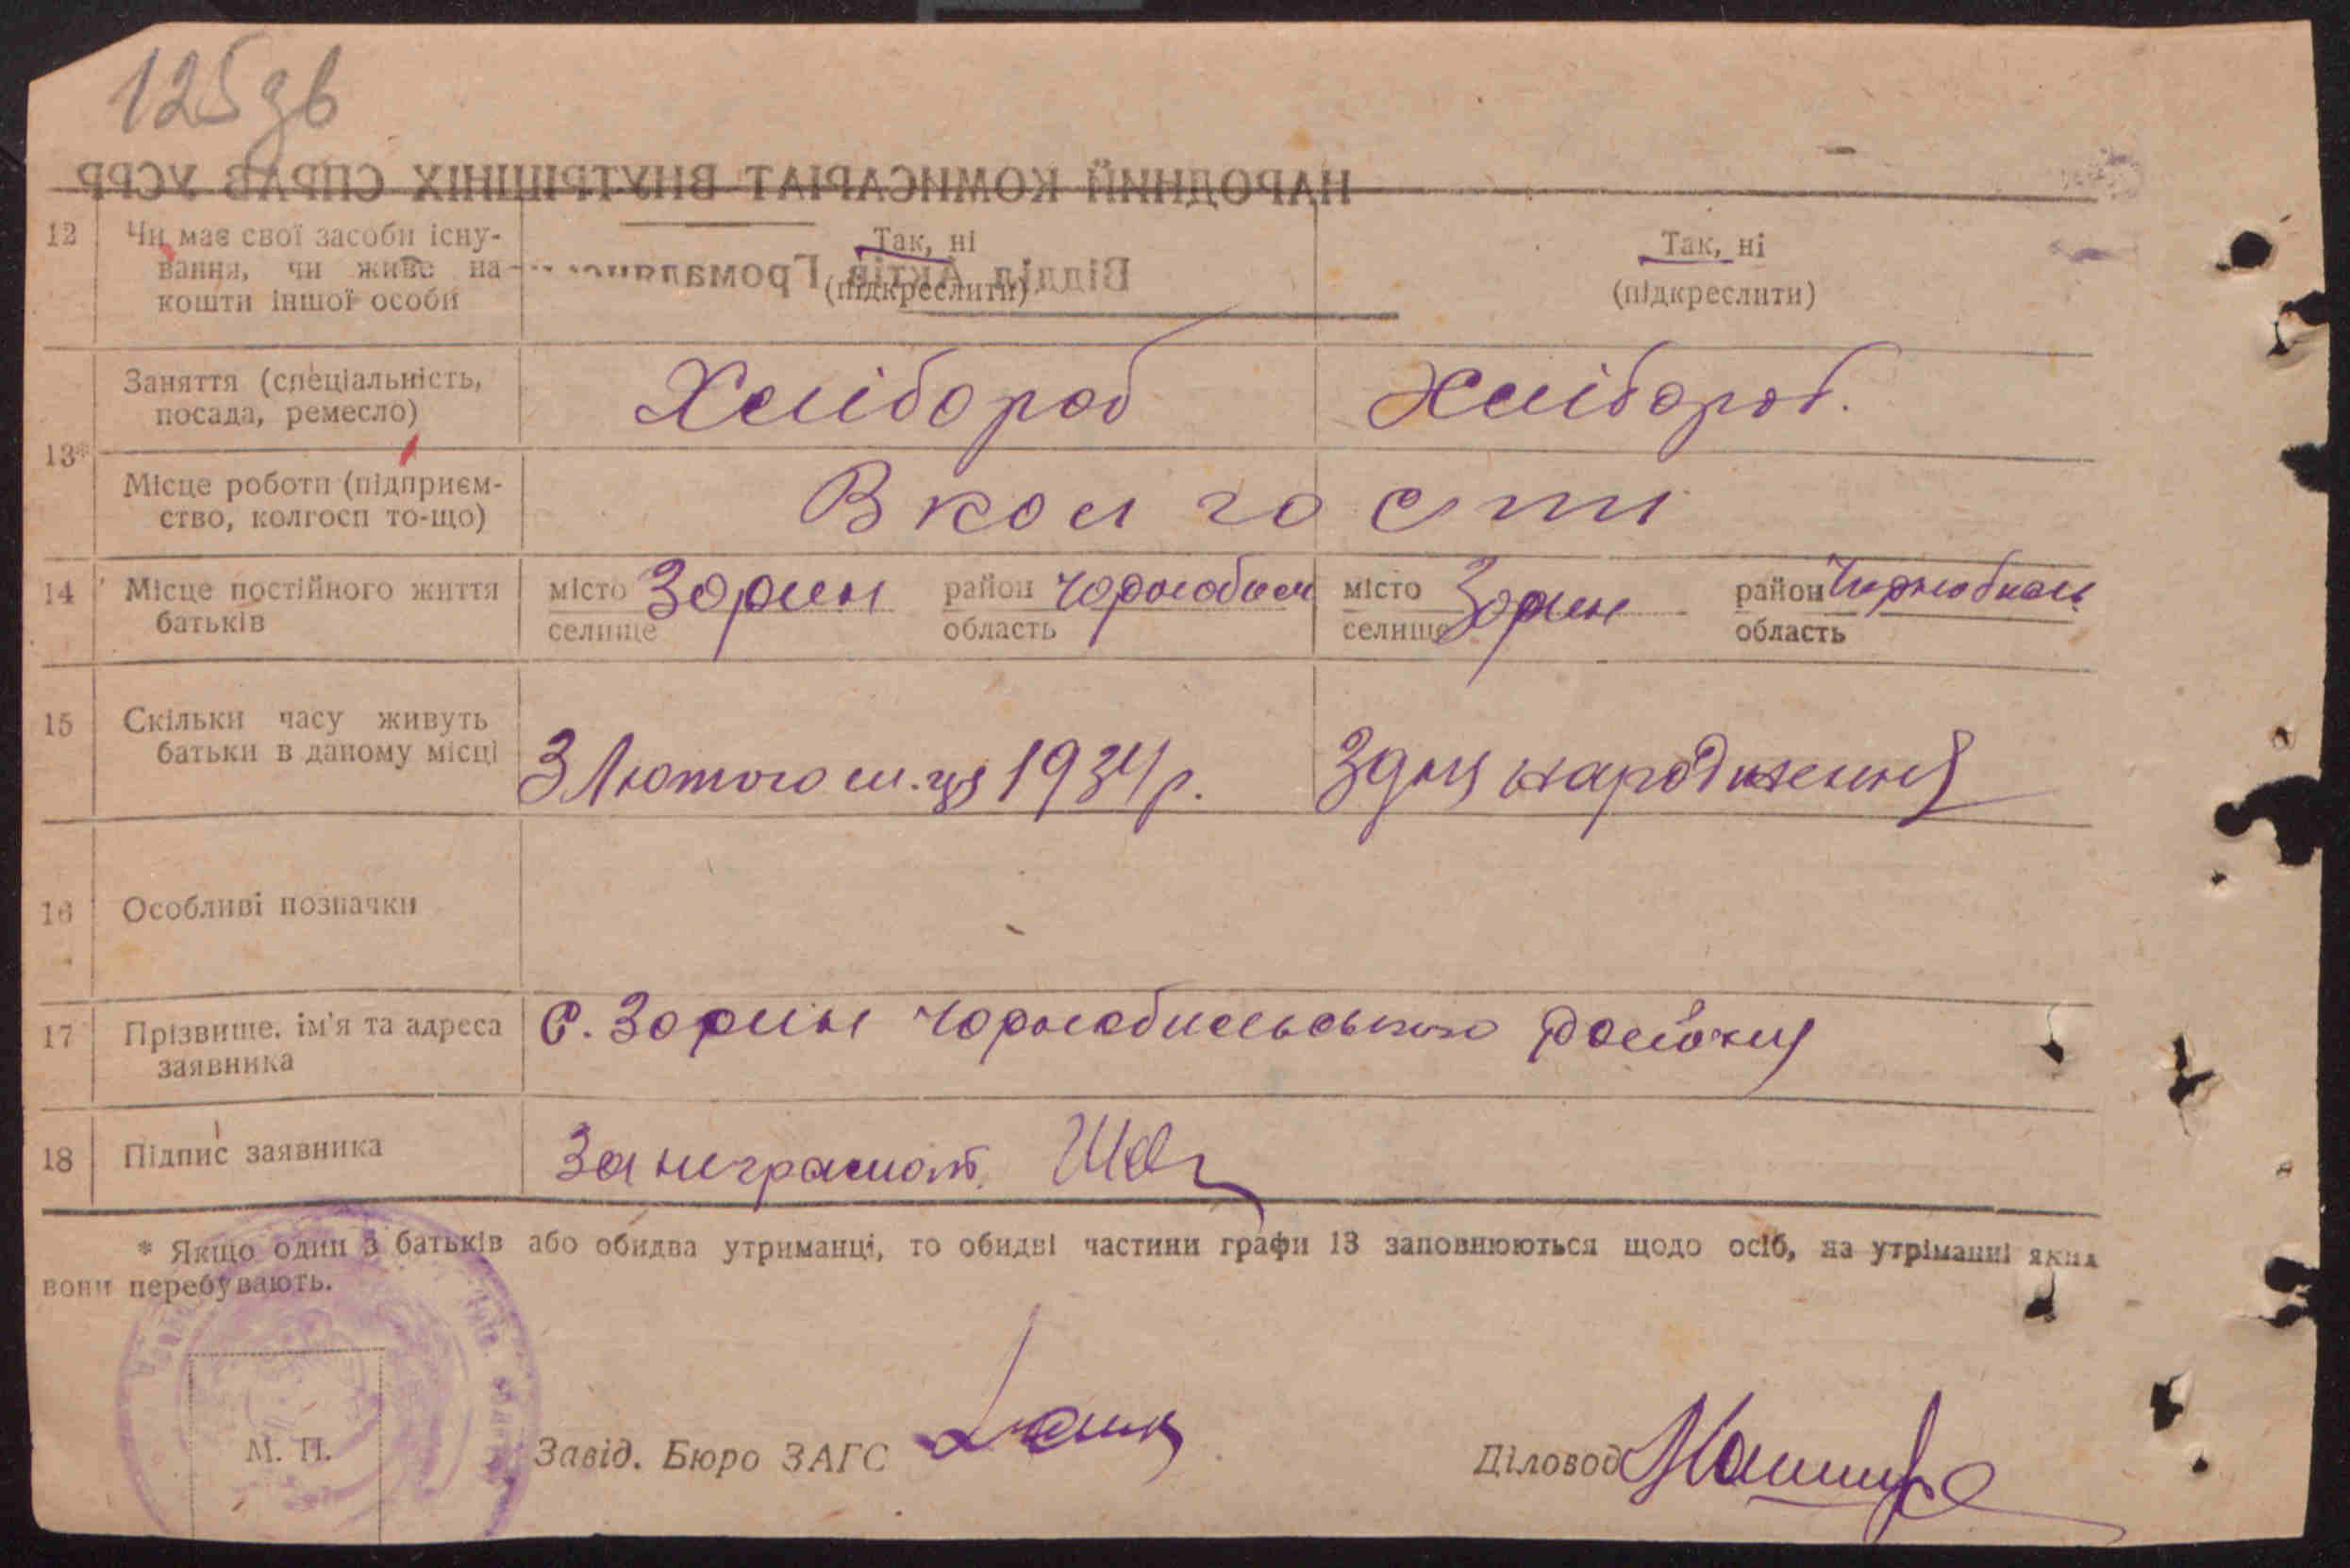 125 зв
НАРОДНИЙ КОМИСАРІАТ ВНУТРІШНІХ СПРАВ УСРР
Відділ Актів Громадянс
12 Чи має свої засоби існу- Так, ні Так, ні
вання, чи живе на (підкреслити) (підкреслити)
кошти іншої особи
13* Заняття (спеціальність, Хлібороб Хлібороб.
посада, ремесло)
Місце роботи (підприєм- В колгоспі
ство, колгосп то-що)
14 Місце постійного життя місто Зорин район Чорнобил місто Зорин район Чорнобиль
батьків селище область селище область
15 Скільки часу живуть З Лютого м.ця 1934 р. З дня народження
батьки в даному місці
16 Особливі позначки
17 Прізвище, ім'я та адреса С. Зорин Чорнобильського району
заявника
18 Підпис заявника За неграмот.
* Якщо один з батьків або обидва утриманці, то обидві частини графи 13 заповнюються щодо осіб, на утріманні яких
вони перебувають.
М. П.
Завід. Бюро ЗАГС Діловод